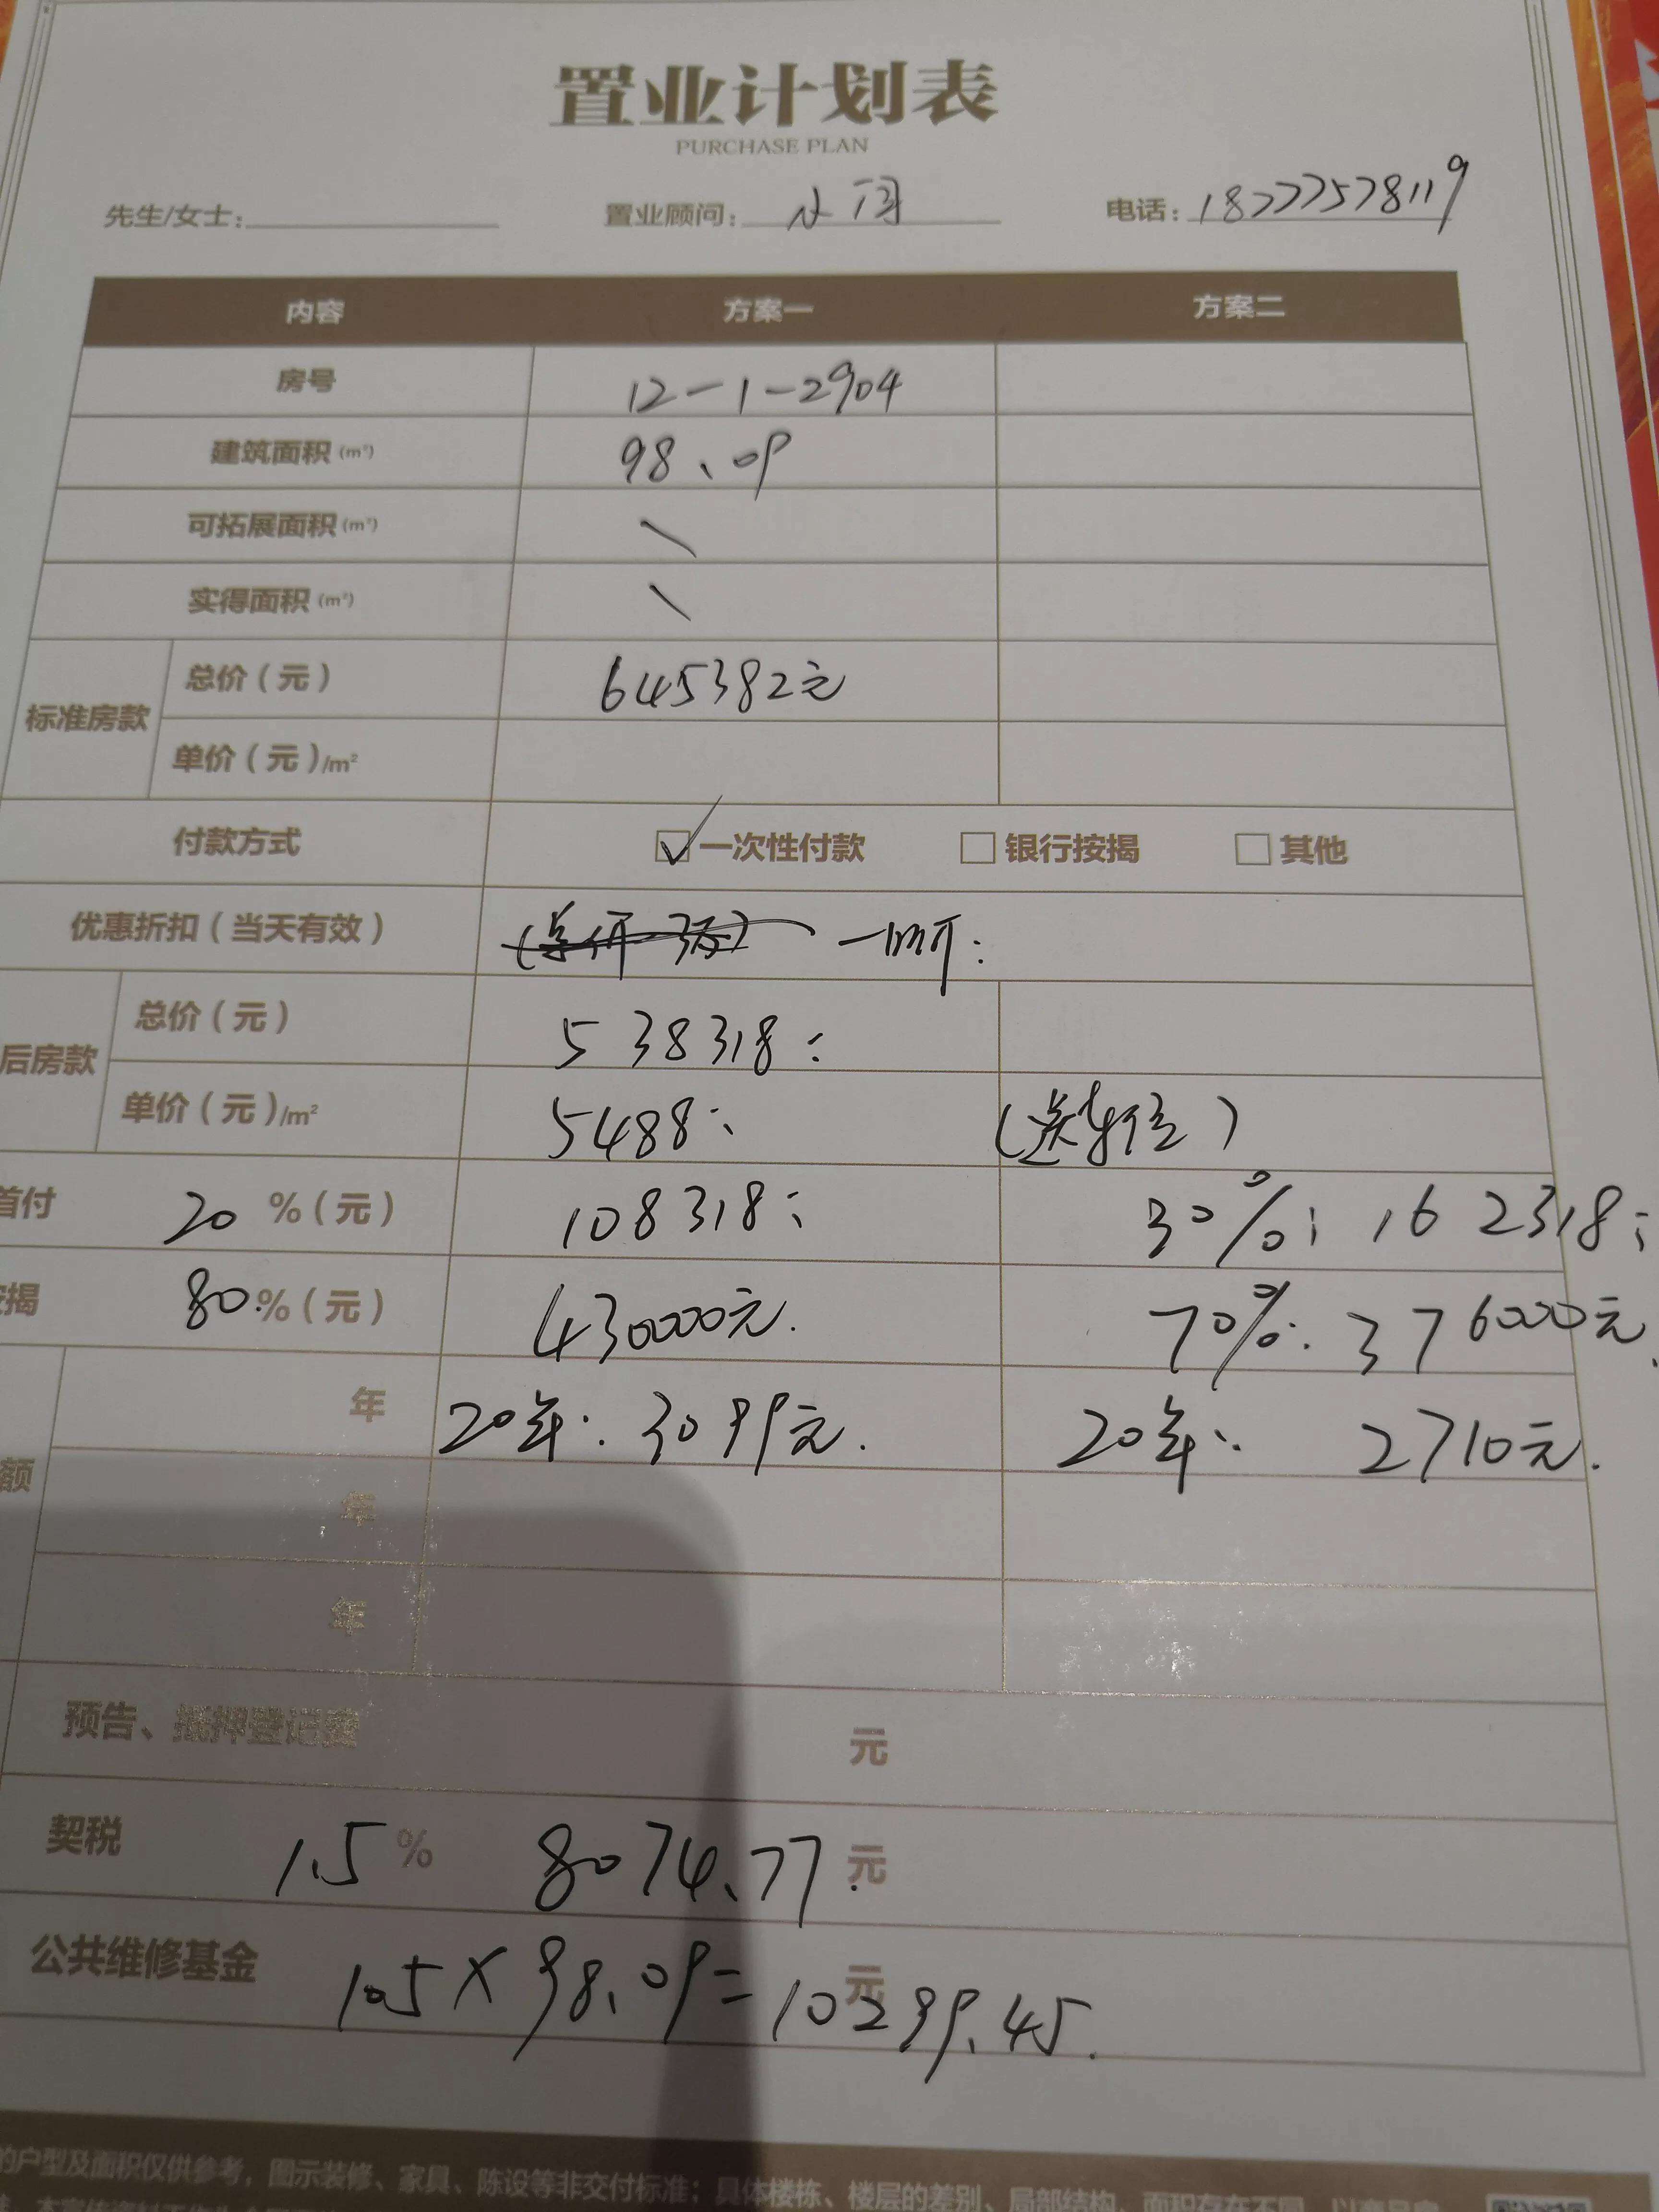 置业计划表
PURCHASE PLAN
先生/女士: 置业顾问: 小闭 电话: 18777578119
内容 方案一 方案二
房号 12-1-2904
建筑面积(m²) 98.09
可拓展面积(m²) \
实得面积(m²) \
标准房款 总价(元) 645382元
单价(元)/m²
付款方式 ☑一次性付款 □银行按揭 □其他
优惠折扣(当天有效) 一口价:
后房款 总价(元) 538318:
单价(元)/m² 5488: (送车位)
首付 20 %(元) 108318: 30%: 162318:
按揭 80 %(元) 430000元. 70%: 376000元.
额 年 20年: 3099元. 20年: 2710元.
年
年
预告、抵押登记费 元
契税 1.5 % 8074.77 元
公共维修基金 105×98.09=10299.45. 元
的户型及面积仅供参考,图示装修、家具、陈设等非交付标准;具体楼栋、楼层的差别、局部结构、面积存在不同,